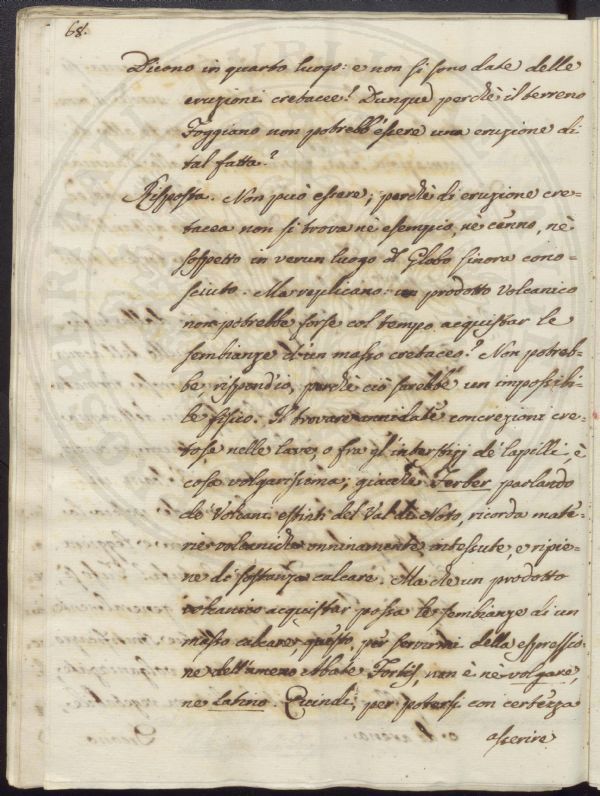 68.
Dicono in quarto luogo: e non si sono date delle
eruzioni cretacee? Dunque perchè il terreno
Foggiano non potrebb'essere una eruzione di
tal fatta?
Risposta. Non può essere; perchè di eruzione cre=
tacea non si trova nè esempio, ne cenno, nè
sospetto in verun luogo d Globo sinora cono=
sciuto. Ma replicano: un prodotto Volcanico
non potrebbe forse col tempo acquistar le
sembianze d'un masso cretaceo? Non potreb=
be, rispond'io, perchè ciò sarebbe un impossibi=
le fisico. Il trovare annidate concrezioni cre=
tose nelle lave, o fra gl'interstizj de' lapilli, è
cosa volgarissima; giacchè Ferber parlando
de' Volcani estinti del Val di Noto, ricorda mate=
rie volcaniche onninamente intessute, e ripie=
ne di sostanza calcare. Ma che un prodotto
volcanico acquistar possa le sembianze di un
masso calcare, questo, per servirmi della espressio=
ne dell'ameno Abate Fortis, non è nè volgare,
ne latino. Quindi, per potersi con certezza
asserire